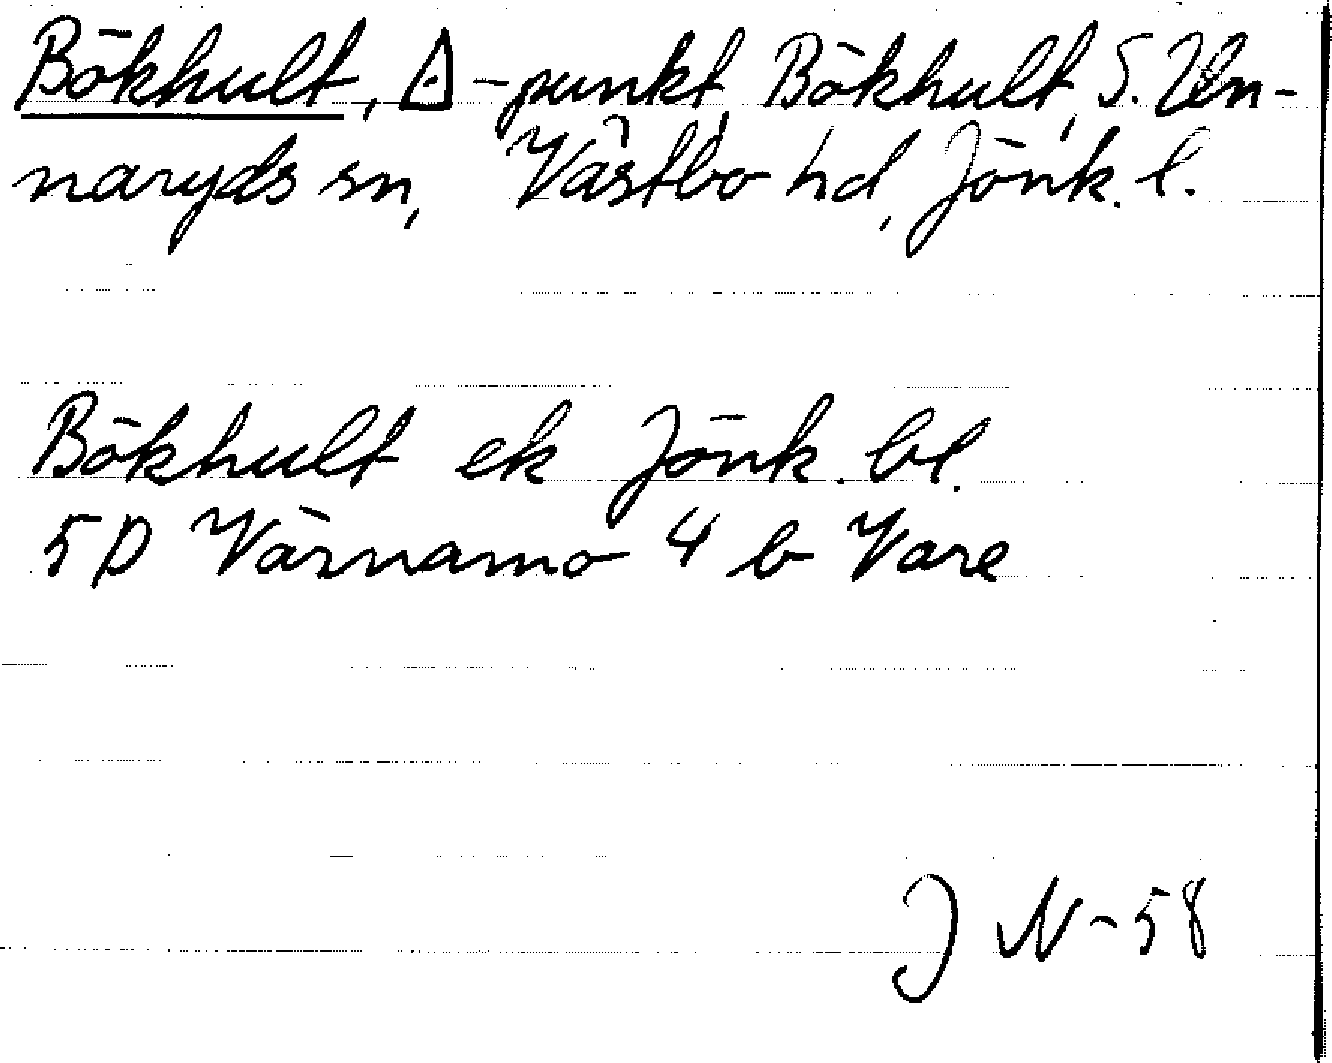 Bökhult, △-punkt, Bökhult, S. Un-
naryds sn, Västbo hd, Jönk. l.
Bökhult ek Jönk. bl.
5 D Värnamo 4 b Vare
J N-58